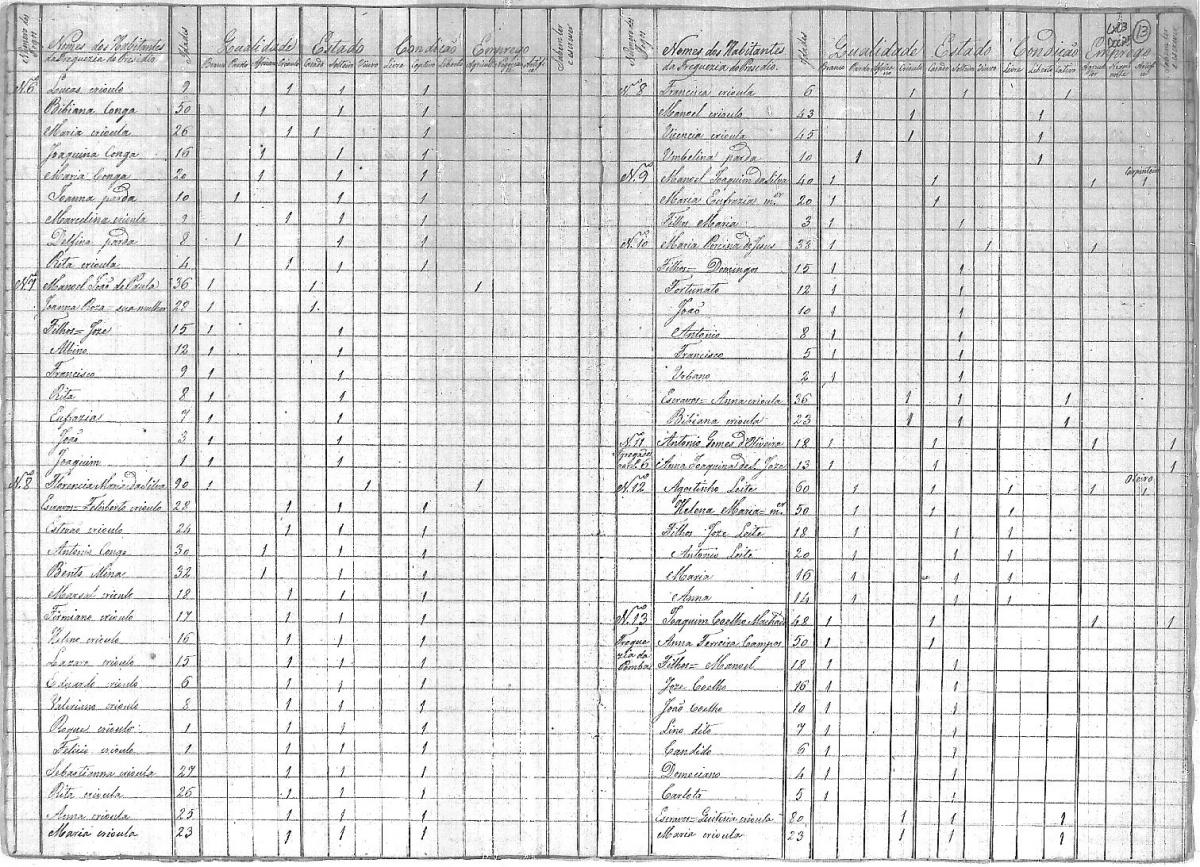 Numero dos Fogos
Nomes dos Habitantes da Freguezia do Presidio
Idades
Qualidade Estado Condição Emprego
Branco Pardo African Crioulo Casado Solteiro Viuvo Livre Captivo Liberto Agricult
Nº 6 Lucas crioulo 9 1 1 1
Bibiana Conga 50 1 1 1
Maria crioula 26 1 1 1
Joaquina Conga 16 1 1 1
Maria Conga 20 1 1 1
Joanna parda 10 1 1 1
Marcelina crioula 9 1 1 1
Delfina parda 8 1 1 1
Rita crioula 4 1 1 1
Nº 7 Manoel João de Paula 36 1 1 1
Joanna Roza sua mulher 28 1 1
Filhos = Joze 15 1 1
Albino 12 1 1
Francisco 9 1 1
Rita 8 1 1
Eufrazia 7 1 1
João 3 1 1
Joaquim 1 1 1
Nº 8 Florencia Maria da Silva 90 1 1 1
Escravos = Feliberto crioulo 28 1 1 1
Estevão crioulo 24 1 1 1
Antonio Congo 30 1 1 1
Bento Mina 32 1 1 1
Marsal crioulo 18 1 1 1
Firmiano crioulo 17 1 1 1
crioulo 16 1 1 1
Lazaro crioulo 15 1 1 1
Eduardo crioulo 6 1 1 1
Valeriano crioulo 8 1 1 1
Roque crioulo 1 1 1 1
Felicio crioulo 1 1 1 1
Sebastianna crioula 27 1 1 1
Rita crioula 26 1 1 1
Anna crioula 25 1 1 1
Maria crioula 23 1 1 1
13
Nomes dos Habitantes da Freguezia do Presidio
Idades
Qualidade Estado Condição Emprego
Branco Pardo Africano Crioulo Casado Solteiro Viuvo Livre Liberto Cativo
Nº 8 Francisca crioula 6 1 1 1
Manoel crioulo 43 1 1
Vicencia crioula 45 1 1
Umbelina parda 10 1 1
Carpinteiro
Nº 9 Manoel Joaquim da Silva 40 1 1 1 1
Maria Eufrazia mer 20 1 1
Filhos Maria 3 1 1
Nº 10 Maria de Jesus 38 1 1 1
Filhos = Domingos 15 1 1
Fortunato 12 1 1
João 10 1 1
Antonio 8 1 1
Francisco 5 1 1
Urbano 2 1 1
Escravos = Anna crioula 36 1 1 1
Bibiana crioula 23 1 1 1
Nº 11 Antonio Gomes d'Oliveira 18 1 1 1 1
Anna Joaquina de S. Joze 13 1 1 1
Oleiro
Nº 12 Agostinho Leite 60 1 1 1 1 1
Helena Maria = mer 50 1 1 1
Filhos Joze Leite 18 1 1 1
Antonio Leite 20 1 1 1
Maria 16 1 1 1
Anna 14 1 1 1
Nº 13 Joaquim Coelho Machado 48 1 1 1 1
Freguezia da Pomba
Anna Ferreira Campos 50 1 1
Filhos = Manoel 18 1 1
Joze Coelho 16 1 1
João Coelho 10 1 1
Lino dito 7 1 1
Candido 6 1 1
Domeciano 4 1 1
Carlota 5 1 1
Escravos = Quiteria crioula 20 1 1 1
Maria crioula 23 1 1 1